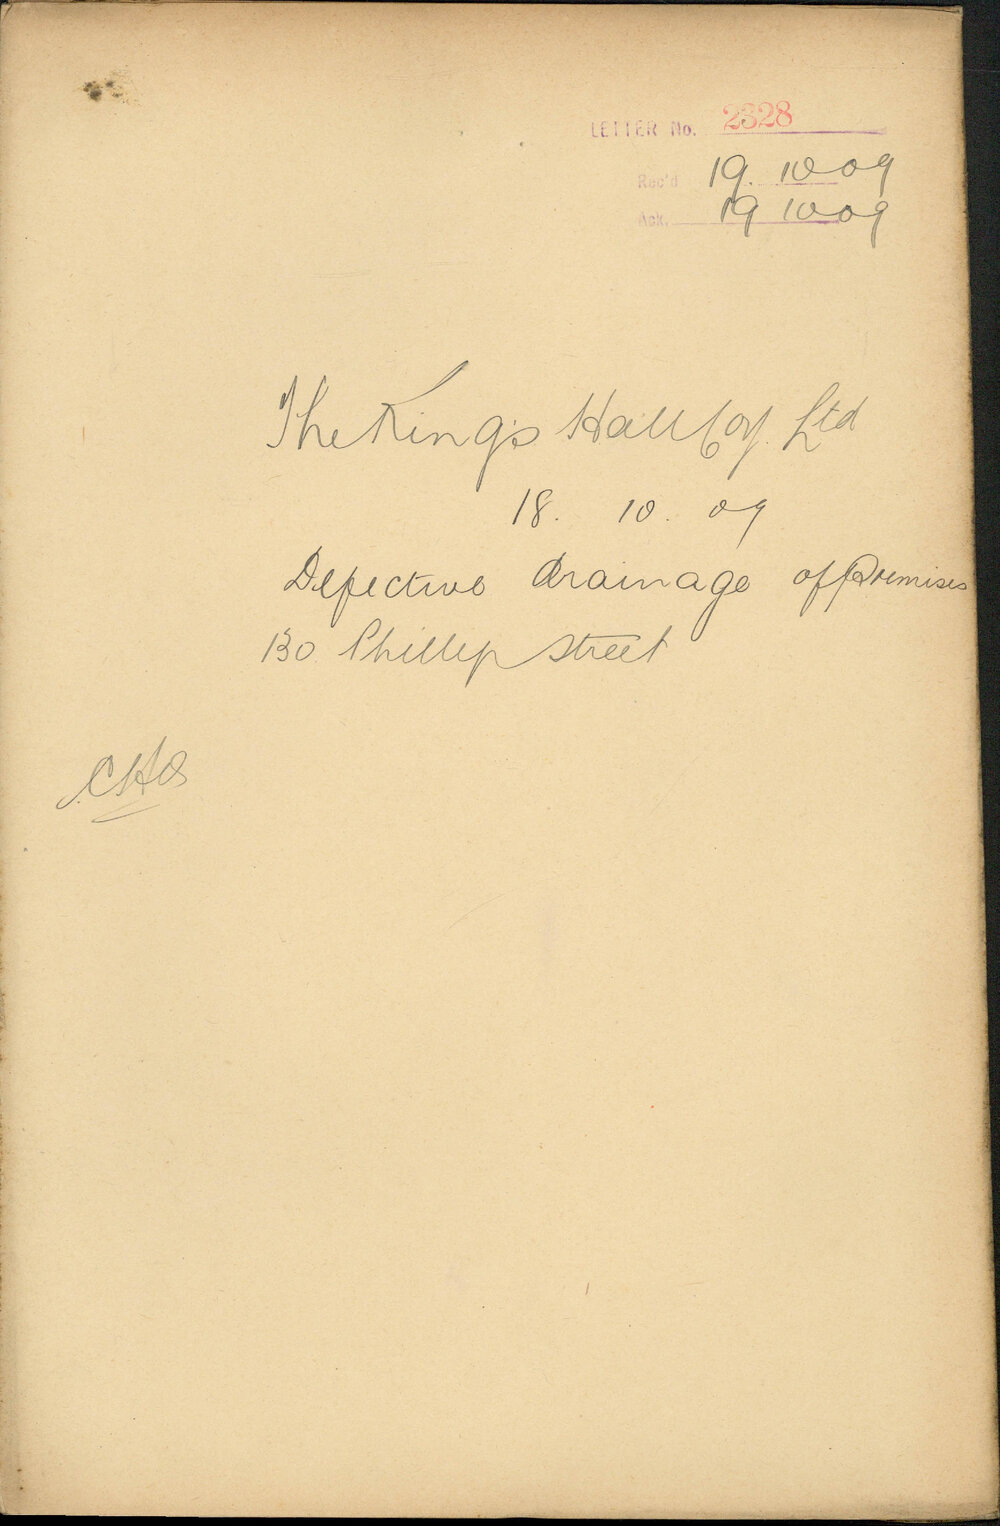 LETTER No. 2328
Rec'd 19. 10 09
Ack. 19 10 09
The King's Hall Coy. Ltd
18. 10. 09
Defective drainage of Premises
130 Phillip Street
CHO